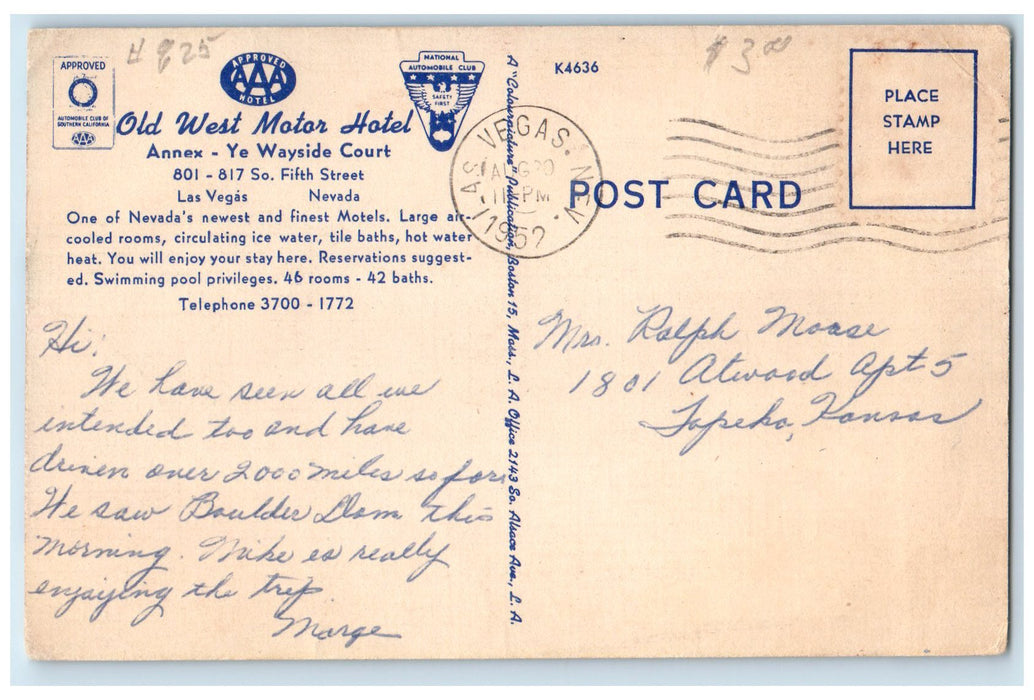 4 925
$3.00
APPROVED
AUTOMOBILE CLUB OF
SOUTHERN CALIFORNIA
AAA
APPROVED
AAA
HOTEL
NATIONAL
AUTOMOBILE CLUB
SAFETY
FIRST
Old West Motor Hotel
Annex - Ye Wayside Court
801 - 817 So. Fifth Street
Las Vegas Nevada
One of Nevada's newest and finest Motels. Large air-
cooled rooms, circulating ice water, tile baths, hot water
heat. You will enjoy your stay here. Reservations suggest-
ed. Swimming pool privileges. 46 rooms - 42 baths.
Telephone 3700 - 1772
Hi!
We have seen all we
intended too and have
driven over 2000 miles so far.
We saw Boulder Dam this
morning. Mike is really
enjoying the trip
Marge
A "Colourpicture" Publication, Boston 15, Mass., L. A. Office 2143 So. Alsace Ave., L. A.
K4636
LAS VEGAS. NEV.
AUG 20
11 - PM
1952
POST CARD
PLACE
STAMP
HERE
Mrs. Ralph Moase
1801 Atwood Apt 5
Topeka, Kansas